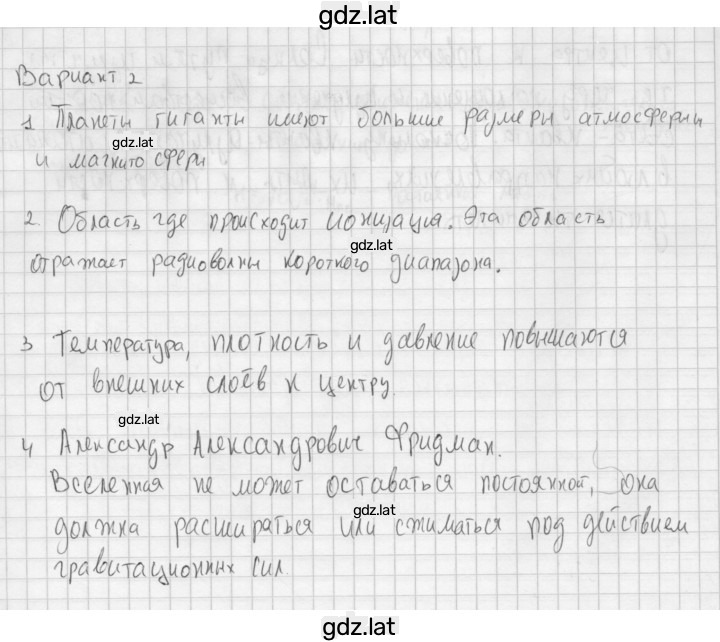 gdz.lat
Вариант 2
1 Планеты гиганты имеют большие размеры атмосферы
gdz.lat
и магнитосферы
2. Область где происходит ионизация. Эта область
gdz.lat
отражает радиоволны короткого диапазона.
3 Температура, плотность и давление повышаются
от внешних слоёв к центру.
gdz.lat
4 Александр Александрович Фридман.
Вселенная не может оставаться постоянной, она
gdz.lat
должна расширяться или сжиматься под действием
гравитационных сил.
gdz.lat